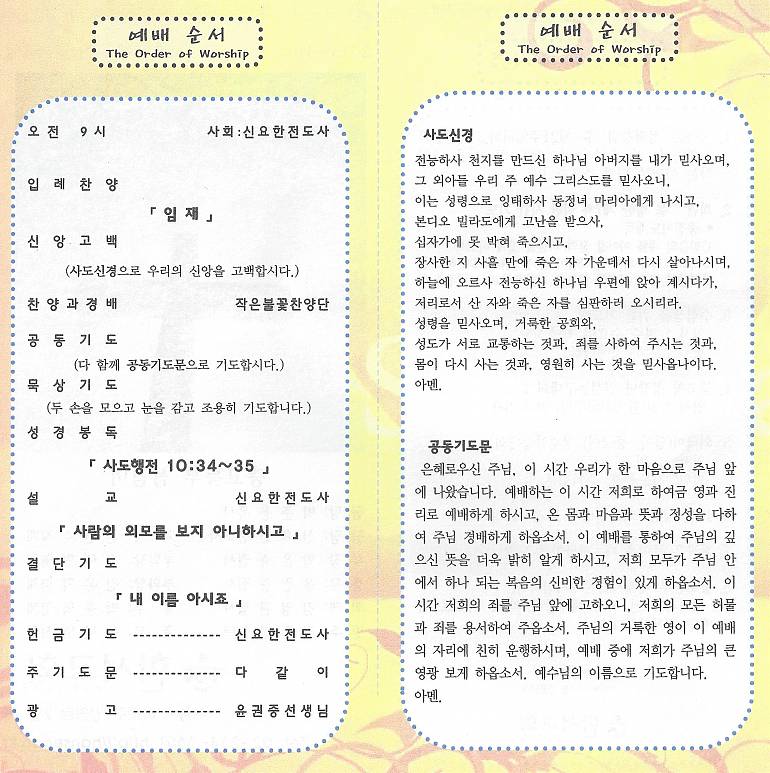 예배 순서
The Order of Worship
오전 9시 사회:신요한전도사
입례찬양
「 임재 」
신앙고백
(사도신경으로 우리의 신앙을 고백합시다.)
찬양과경배 작은불꽃찬양단
공동기도
(다 함께 공동기도문으로 기도합시다.)
묵상기도
(두 손을 모으고 눈을 감고 조용히 기도합니다.)
성경봉독
「 사도행전 10:34~35 」
설교 신요한전도사
「 사람의 외모를 보지 아니하시고 」
결단기도
「 내 이름 아시죠 」
헌금기도 -------------- 신요한전도사
주기도문 -------------- 다같이
광고 -------------- 윤권중선생님
예배 순서
The Order of Worship
사도신경
전능하사 천지를 만드신 하나님 아버지를 내가 믿사오며,
그 외아들 우리 주 예수 그리스도를 믿사오니,
이는 성령으로 잉태하사 동정녀 마리아에게 나시고,
본디오 빌라도에게 고난을 받으사,
십자가에 못 박혀 죽으시고,
장사한 지 사흘 만에 죽은 자 가운데서 다시 살아나시며,
하늘에 오르사 전능하신 하나님 우편에 앉아 계시다가,
저리로서 산 자와 죽은 자를 심판하러 오시리라.
성령을 믿사오며, 거룩한 공회와,
성도가 서로 교통하는 것과, 죄를 사하여 주시는 것과,
몸이 다시 사는 것과, 영원히 사는 것을 믿사옵나이다.
아멘.
공동기도문
은혜로우신 주님, 이 시간 우리가 한 마음으로 주님 앞
에 나왔습니다. 예배하는 이 시간 저희로 하여금 영과 진
리로 예배하게 하시고, 온 몸과 마음과 뜻과 정성을 다하
여 주님 경배하게 하옵소서. 이 예배를 통하여 주님의 깊
으신 뜻을 더욱 밝히 알게 하시고, 저희 모두가 주님 안
에서 하나 되는 복음의 신비한 경험이 있게 하옵소서. 이
시간 저희의 죄를 주님 앞에 고하오니, 저희의 모든 허물
과 죄를 용서하여 주옵소서. 주님의 거룩한 영이 이 예배
의 자리에 친히 운행하시며, 예배 중에 저희가 주님의 큰
영광 보게 하옵소서. 예수님의 이름으로 기도합니다.
아멘.